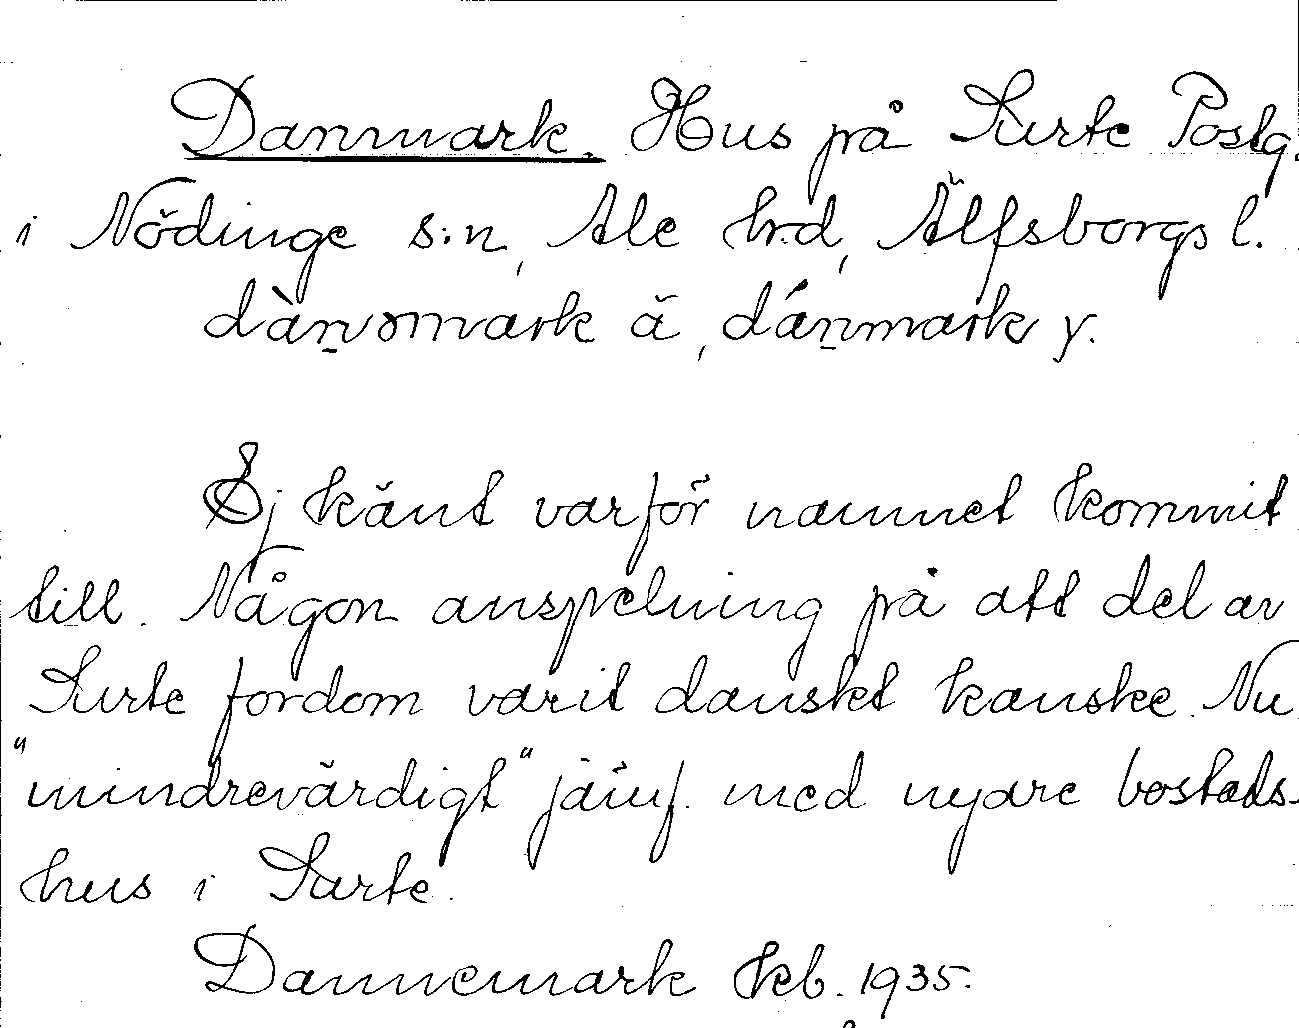 Danmark. Hus på Surte Postg.
i Nödinge s:n, Ale hrd, Älfsborgs l.
dànəmark ä, dánmark y.
Ej känt varför namnet kommit
till. Någon anspelning på att del av
Surte fordom varit danskt kanske. Nu
"mindrevärdigt" jämf. med nyare bostads-
hus i Surte.
Dannemark kb. 1935.